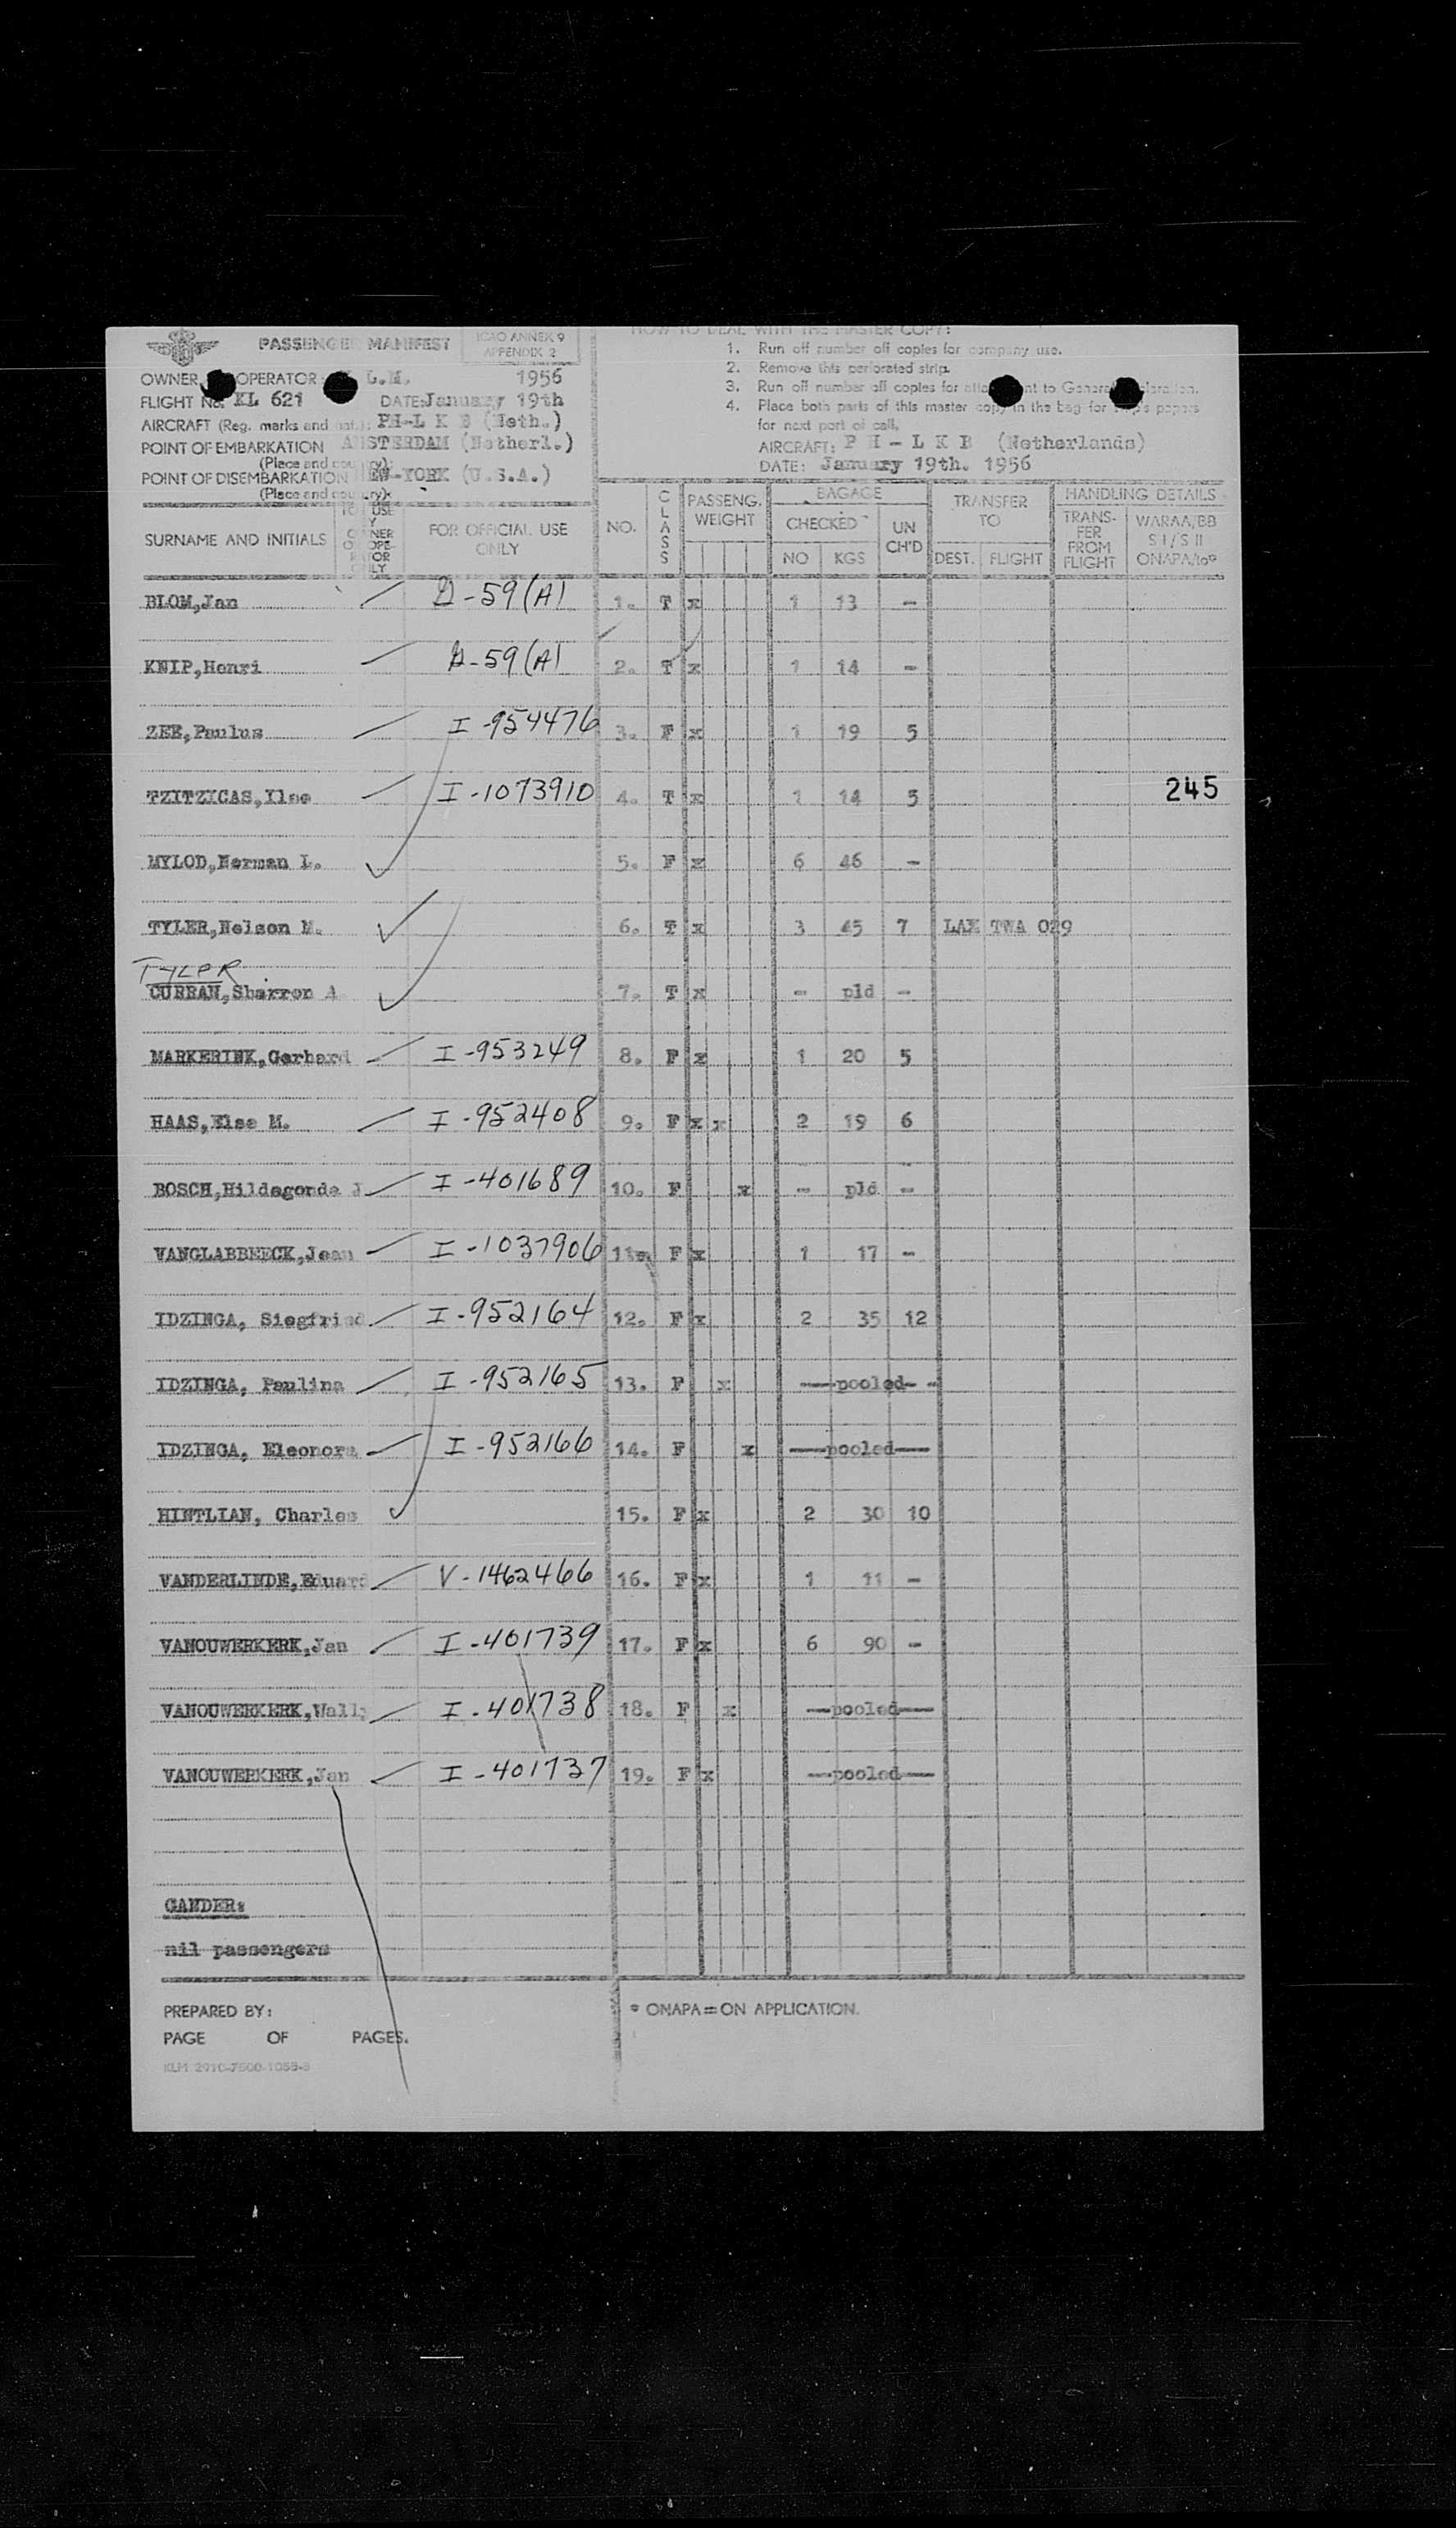 PASSENGER MANIFEST
ICAO ANNEX 9
APPENDIX 2
OWNER OPERATOR: L.M. 1956
FLIGHT No. KL 621 DATE: January 19th
AIRCRAFT (Reg. marks and nat.): PH-L K B (Neth.)
POINT OF EMBARKATION AMSTERDAM (Netherl.)
(Place and country):
POINT OF DISEMBARKATION NEW-YORK (U.S.A.)
(Place and country):
HOW TO DEAL WITH THE MASTER COPY:
1. Run off number off copies for company use.
2. Remove this perforated strip.
3. Run off number off copies for
4. Place both parts of this master copy in the bag for papers
for next port of call.
AIRCRAFT: P H - L K B (Netherlands)
DATE: January 19th. 1956
SURNAME AND INITIALS
FOR OFFICIAL USE ONLY
NO.
CLASS
PASSENG. WEIGHT
BAGAGE
CHECKED
NO KGS
UN CH'D
TRANSFER TO
DEST. FLIGHT
HANDLING DETAILS
TRANSFER FROM FLIGHT
WARAA/BB
S I / S II
ONAPA/IoP
BLOM,Jan D-59(A) 1. T x 1 13 -
KNIP,Henri D-59(A) 2. T x 1 14 -
ZEE,Paulus I-954476 3. F x 1 19 5
TZITZICAS,Ilse I-1073910 4. T x 1 14 5 245
MYLOD,Norman L. 5. F x 6 46 -
TYLER,Nelson M. 6. T x 3 45 7 LAX TWA 029
TYLER
CURRAN,Sharron A 7. T x - pld -
MARKERINK,Gerhard I-953249 8. F x 1 20 5
HAAS,Else M. I-952408 9. F x x 2 19 6
BOSCH,Hildegonda J I-401689 10. F x - pld -
VANGLABBEECK,Jean I-1037906 11. F x 1 17 -
IDZINGA, Siegfried I-952164 12. F x 2 35 12
IDZINGA, Paulina I-952165 13. F x ---pooled- -
IDZINGA, Eleonora I-952166 14. F x ---pooled---
HINTLIAN, Charles 15. F x 2 30 10
VANDERLINDE,Eduard V-1462466 16. F x 1 11 -
VANOUWERKERK,Jan I-401739 17. F x 6 90 -
VANOUWERKERK,Wally I-401738 18. F x ---pooled---
VANOUWERKERK,Jan I-401737 19. F x ---pooled---
GANDER:
nil passengers
PREPARED BY:
PAGE OF PAGES.
* ONAPA=ON APPLICATION.
KLM 2910-7500-1055-S